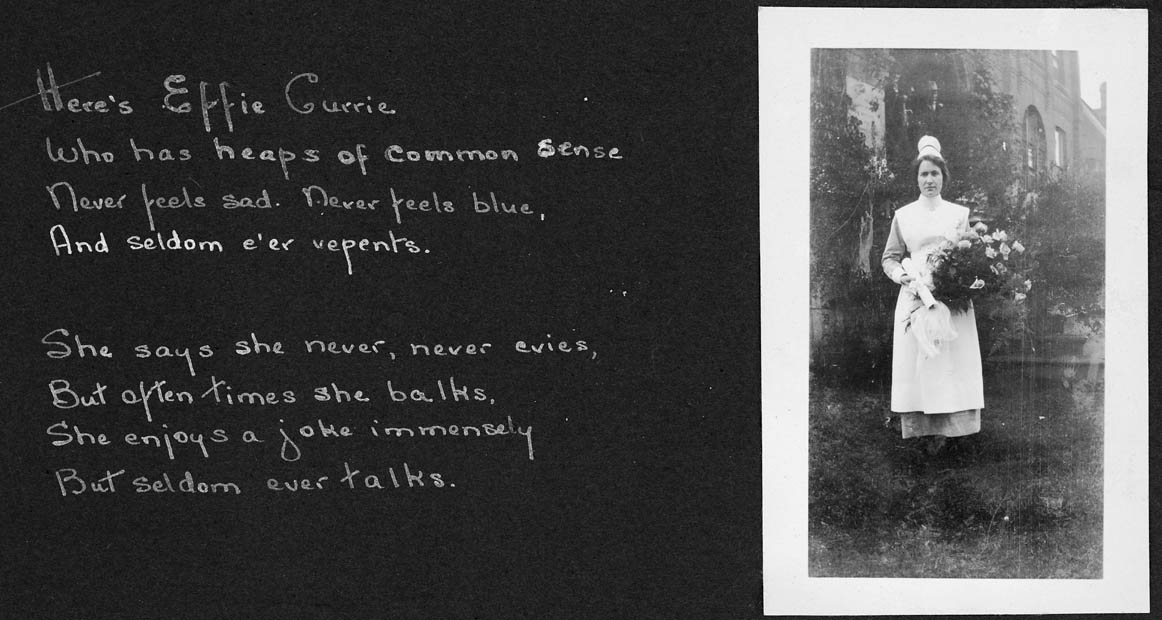 Here's Effie Currie
Who has heaps of common sense
Never feels sad. Never feels blue,
And seldom e'er repents.
She says she never, never cries,
But often times she balks,
She enjoys a joke immensely
But seldom ever talks.